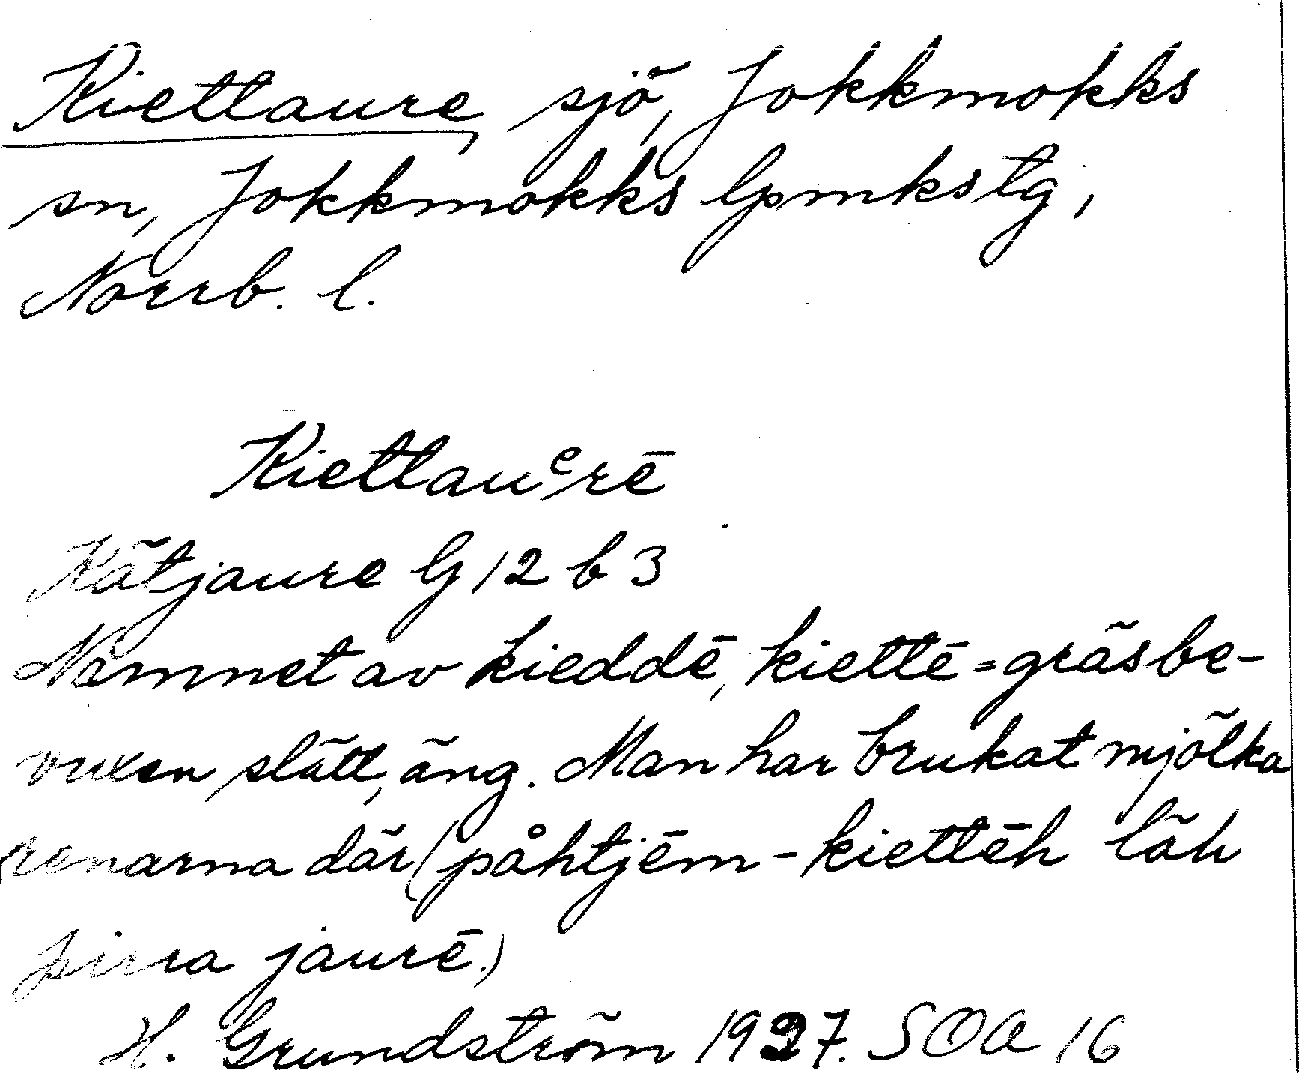 Kiettaure, sjö, Jokkmokks
sn, Jokkmokks lpmkstg,
Norrb. l.
Kiettauᵉrē
Kätjaure G 12 b 3
Namnet av kieddē, kiettē = gräsbe-
vuxen slätt, äng. Man har brukat mjölka
renarna där (påhtjēm-kiettēh läh
pirra jaurē.)
H. Grundström 1927. SOA 16